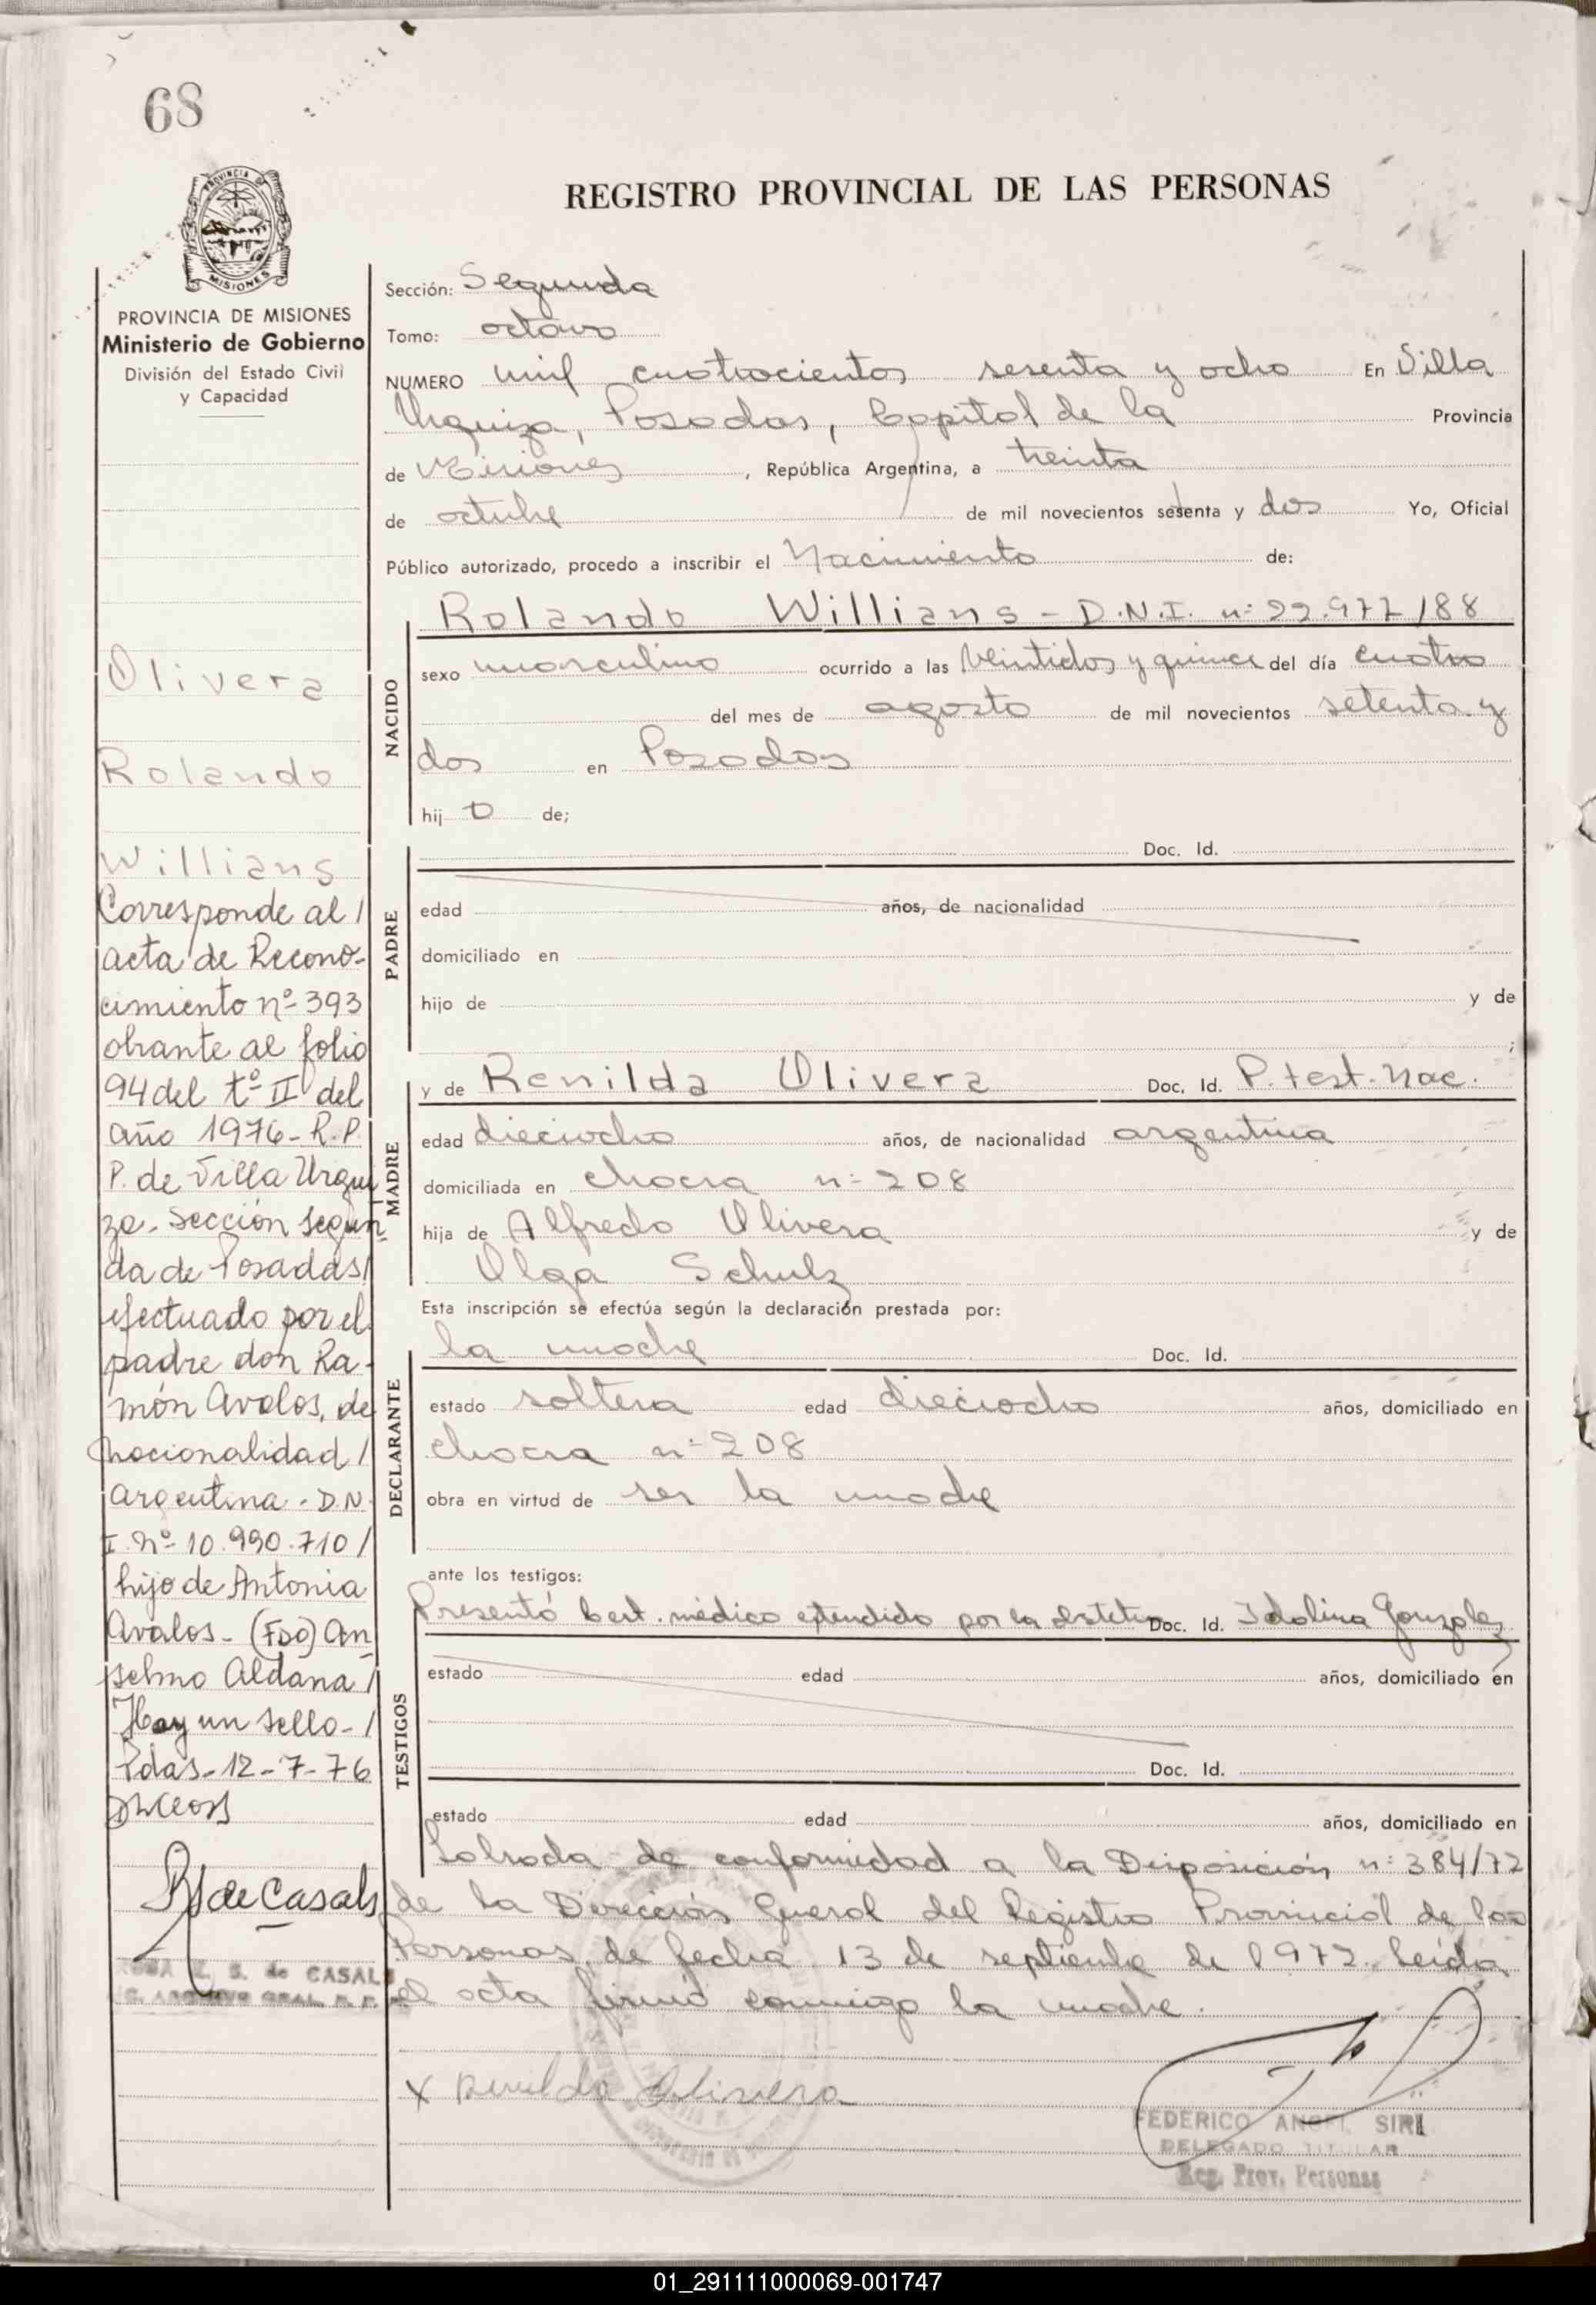 68
PROVINCIA DE
MISIONES
REGISTRO PROVINCIAL DE LAS PERSONAS
PROVINCIA DE MISIONES
Ministerio de Gobierno
División del Estado Civil
y Capacidad
Olivera
Rolando
Willians
Corresponde al /
acta de Recono-
cimiento nº 393
obrante al folio
94 del tº II del
año 1976 - R.P.
P. de Villa Urqui
za - Sección Segun
da de Posadas /
efectuado por el
padre don Ra-
món Avalos, de
nacionalidad /
argentina - D.N.
I. Nº 10.990.710 /
hijo de Antonia
Avalos - (FDO) An
selmo Aldana /
Hay un sello - /
Pdas - 12 - 7 - 76
de Casals
S. de CASALS
Sección: Segunda
Tomo: octavo
NUMERO mil cuatrocientos sesenta y ocho En Villa
Urquiza, Posadas, Capital de la Provincia
de Misiones, República Argentina, a treinta
de octubre de mil novecientos setenta y dos Yo, Oficial
Público autorizado, procedo a inscribir el Nacimiento de:
Rolando Willians - D.N.I. nº 22.977/88
NACIDO
sexo masculino ocurrido a las veintidos y quince del día cuatro
del mes de agosto de mil novecientos setenta y
dos en Posadas
hij o de;
PADRE
Doc. Id.
edad años, de nacionalidad
domiciliado en
hijo de y de
;
MADRE
y de Renilda Olivera Doc. Id. P. test. Nac.
edad dieciocho años, de nacionalidad argentina
domiciliada en chacra nº 208
hija de Alfredo Olivera y de
Olga Schulz
Esta inscripción se efectúa según la declaración prestada por:
DECLARANTE
la madre Doc. Id.
estado soltera edad dieciocho años, domiciliado en
chacra nº 208
obra en virtud de ser la madre
ante los testigos:
TESTIGOS
Presentó Cert. médico extendido por la obstetra Doc. Id. Idolina Gonzalez
estado edad años, domiciliado en
Doc. Id.
estado edad años, domiciliado en
Labrada de conformidad a la Disposición nº 384/72
de la Dirección General del Registro Provincial de las
Personas, de fecha 13 de septiembre de 1972. Leída
el acta firmó conmigo la madre.
x Renilda Olivera
FEDERICO ANGEL SIRI
DELEGADO TITULAR
Reg. Prov. Personas
01_291111000069-001747